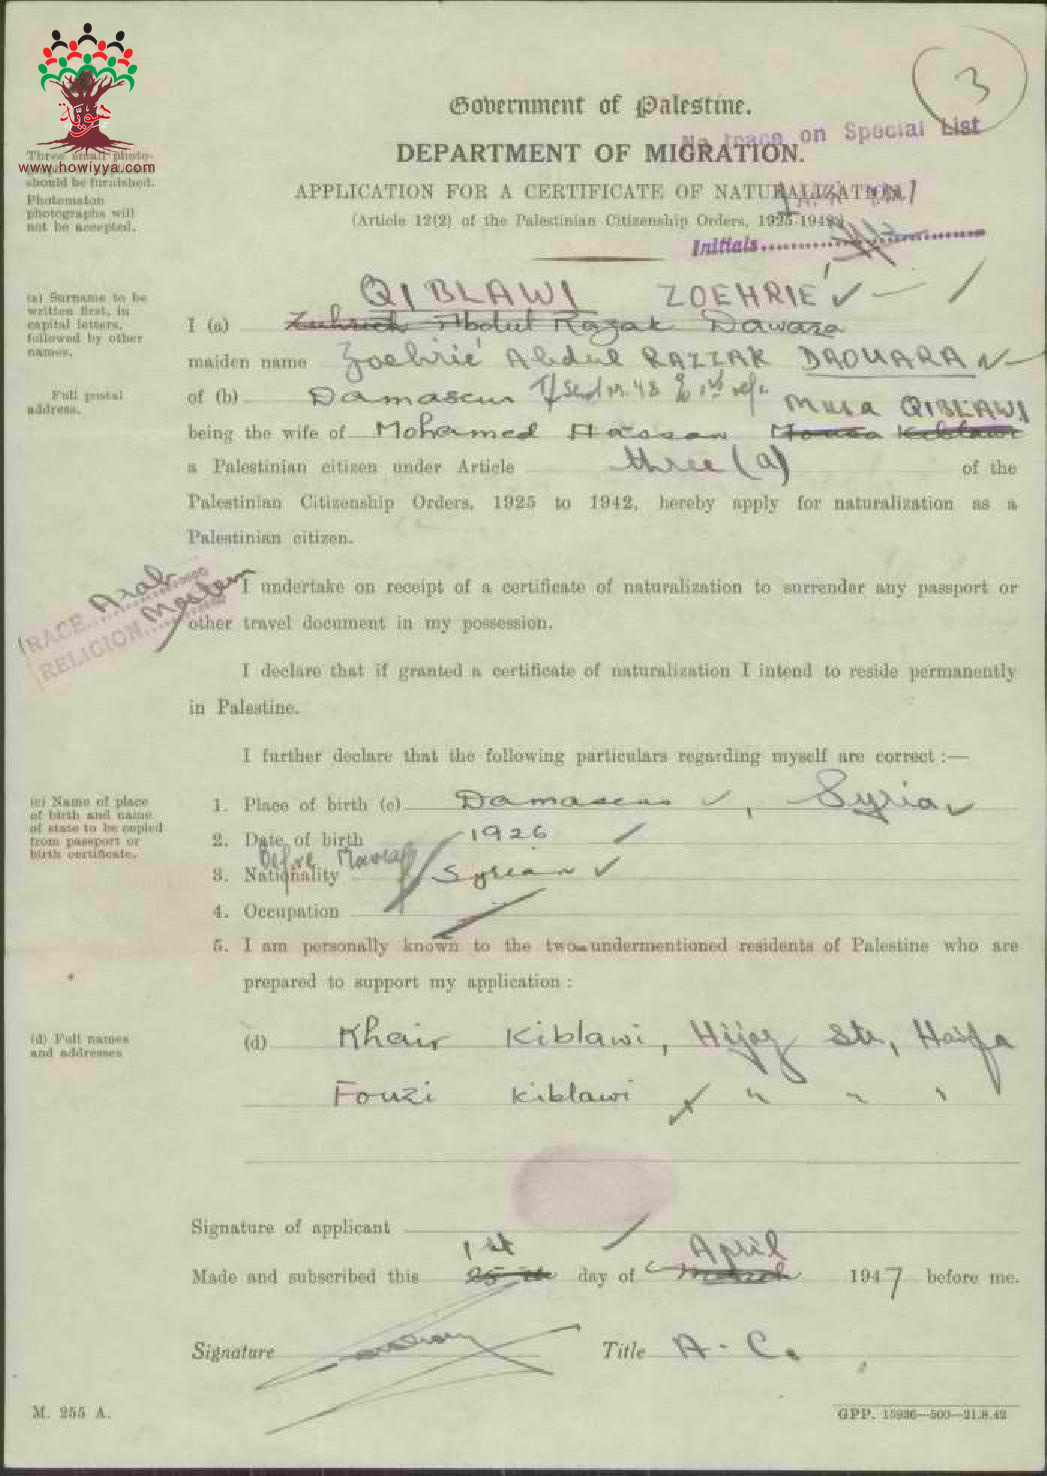 هوية
www.howiyya.com
3
Government of Palestine.
No trace on Special List
DEPARTMENT OF MIGRATION.
APPLICATION FOR A CERTIFICATE OF NATURALIZATION.
(Article 12(2) of the Palestinian Citizenship Orders, 1925-1942)
Initials
Three small photo-
should be furnished.
Photomaton
photographs will
not be accepted.
QIBLAWI ZOEHRIÉ
(a) Surname to be
written first, in
capital letters,
followed by other
names.
I (a) Zuhrieh Abdul Razak Dawara
maiden name Zoehrié Abdul RAZZAK DAOUARA
(b) Full postal
address.
of (b) Damascus
Musa QIBLAWI
being the wife of Mohamed Hassan Mousa Kiblawi
a Palestinian citizen under Article three (a) of the
Palestinian Citizenship Orders, 1925 to 1942, hereby apply for naturalization as a
Palestinian citizen.
RACE Arab
RELIGION Moslem
I undertake on receipt of a certificate of naturalization to surrender any passport or
other travel document in my possession.
I declare that if granted a certificate of naturalization I intend to reside permanently
in Palestine.
I further declare that the following particulars regarding myself are correct :—
(c) Name of place
of birth and name
of state to be copied
from passport or
birth certificate.
1. Place of birth (c) Damascus, Syria
2. Date of birth 1926
Before Marriage
3. Nationality Syrian
4. Occupation
5. I am personally known to the two undermentioned residents of Palestine who are
prepared to support my application :
(d) Full names
and addresses
(d) Khair Kiblawi, Hijaz Str, Haifa
Fouzi Kiblawi " " "
Signature of applicant
1st April
Made and subscribed this 25th day of March 1947 before me.
Signature Title A.C.
M. 255 A.
GPP. 15936—500—21.8.42